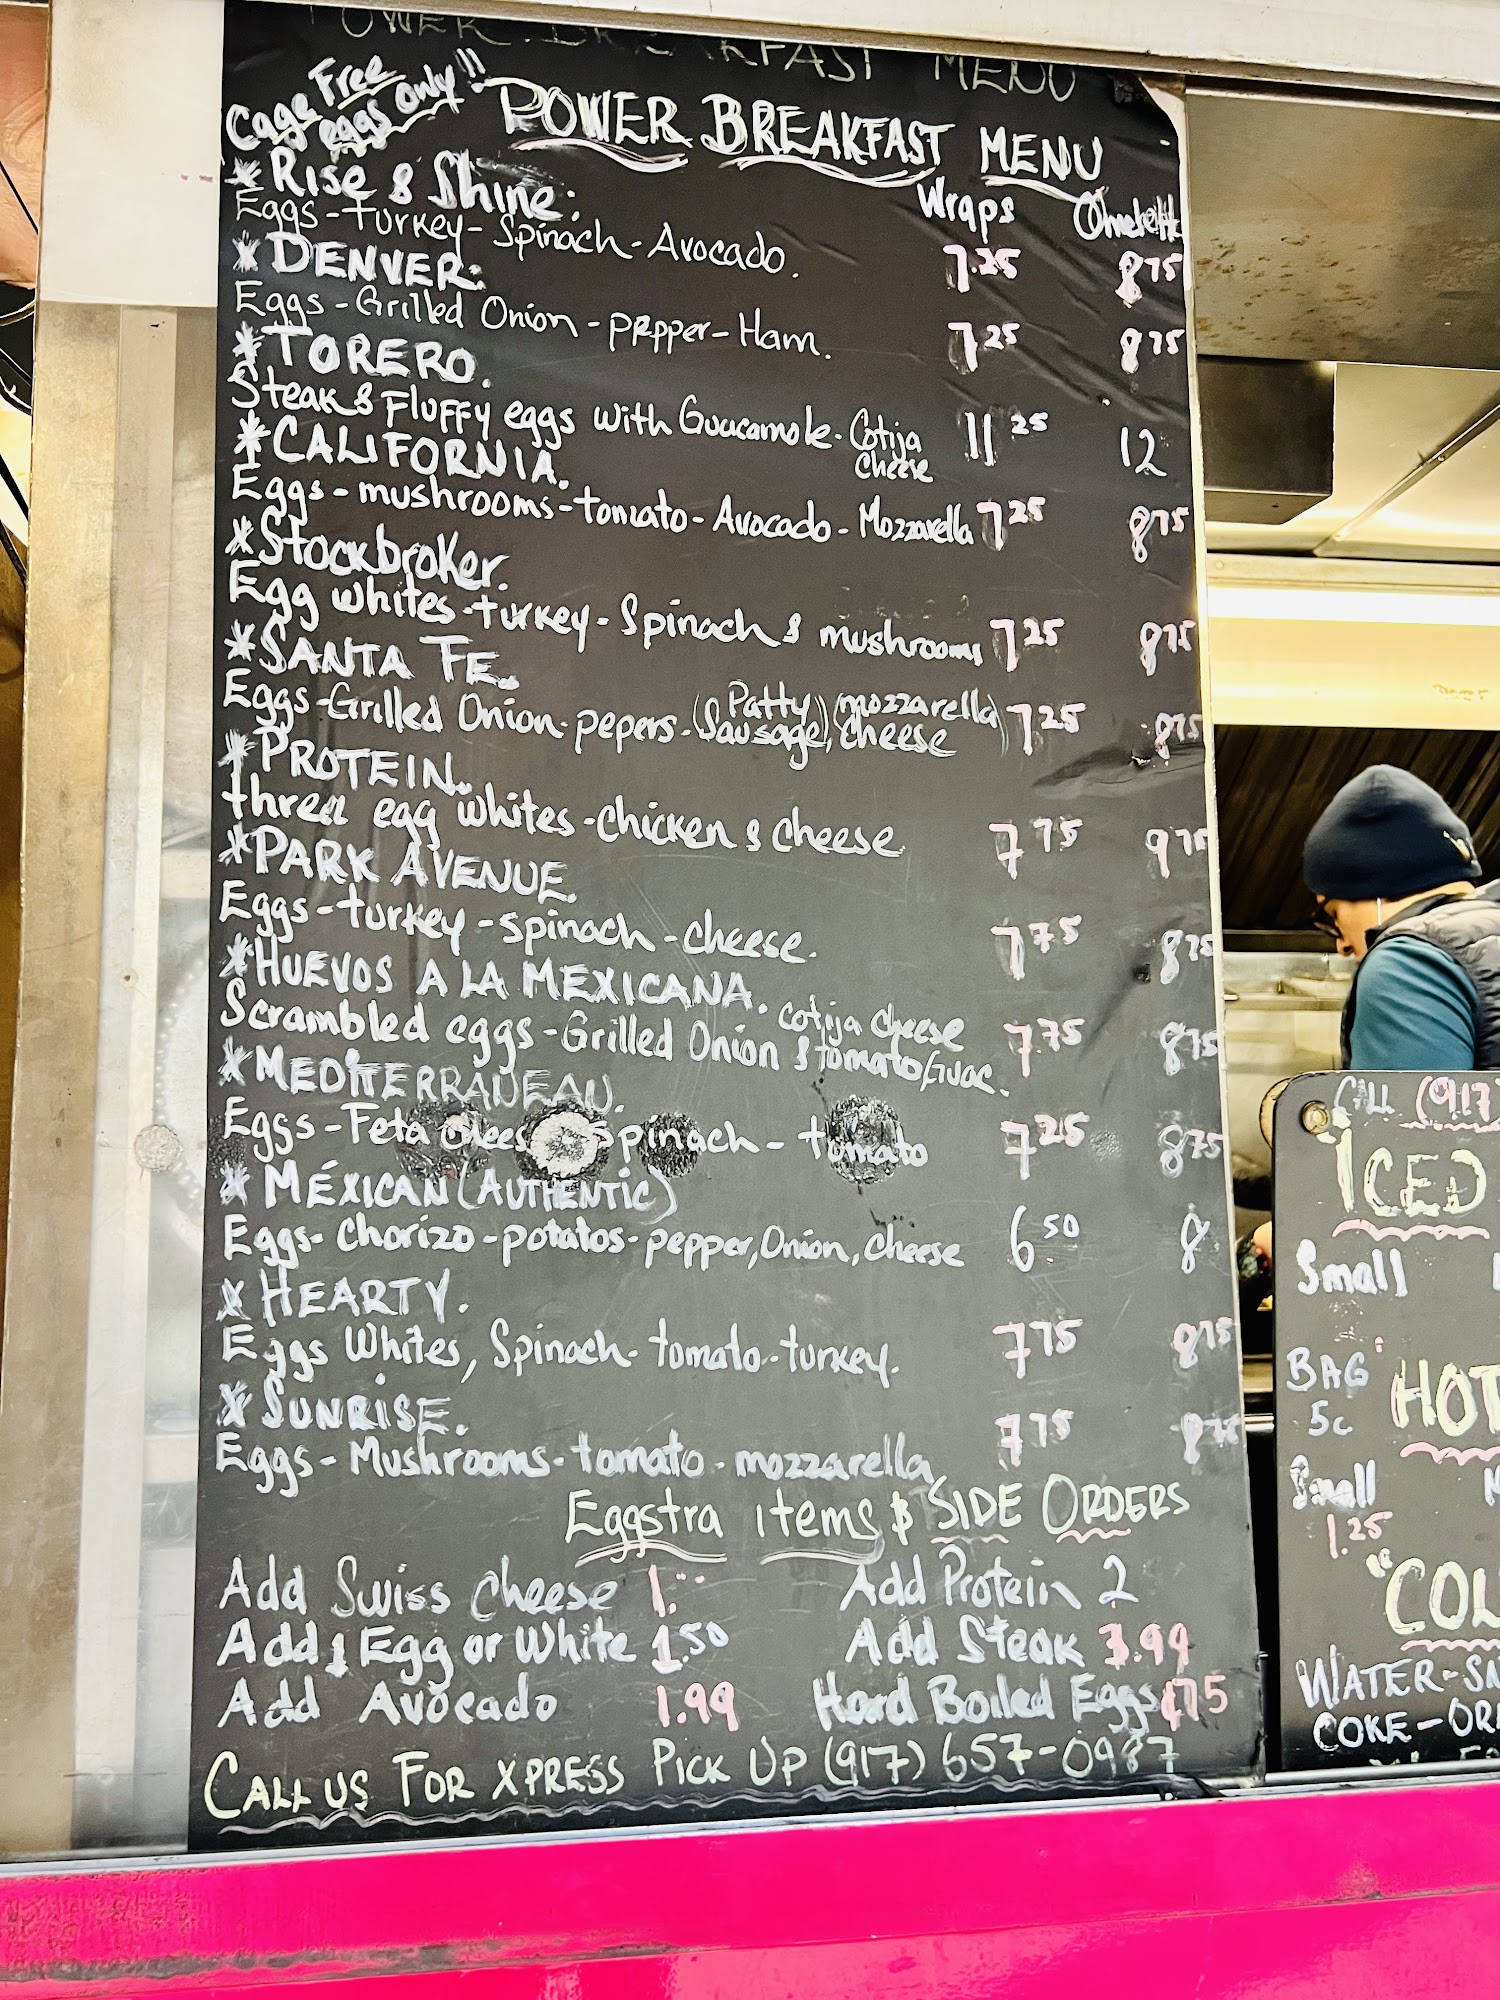 POWER BREAKFAST MENU
Cage Free
eggs only!!
POWER BREAKFAST MENU
Wraps Omelette
*Rise & Shine:
Eggs-Turkey-Spinach-Avocado. 7.25 875
*DENVER:
Eggs-Grilled Onion-pepper-Ham. 725 875
*TORERO.
Steak & Fluffy eggs with Guacamole-Cotija Cheese 11 25 12
*CALIFORNIA.
Eggs-mushrooms-tomato-Avocado-Mozzarella 725 875
*Stockbroker.
Egg whites-turkey-Spinach & mushrooms 725 875
*SANTA FE.
Eggs-Grilled Onion-pepers-(Patty Sausage), mozzarella cheese 725 875
*PROTEIN.
three egg whites-chicken & cheese 775 975
*PARK AVENUE.
Eggs-turkey-spinach-cheese. 775 875
*HUEVOS A LA MEXICANA.
Scrambled eggs-Grilled Onion & tomato/Guac. cotija cheese 7.75 875
*MEDITERRANEAN.
Eggs-Feta cheese Spinach-tomato 725 875
*MÉXICAN (AUTHENTIC)
Eggs-Chorizo-potatos-pepper, Onion, cheese 650 8
*HEARTY.
Eggs Whites, Spinach-tomato-turkey. 775 875
*SUNRISE.
Eggs-Mushrooms-tomato-mozzarella 775 875
Eggstra items & SIDE ORDERS
Add Swiss cheese 1. Add Protein 2
Add 1 Egg or White 1.50 Add Steak 3.99
Add Avocado 1.99 Hard Boiled Eggs ¢75
CALL US FOR XPRESS PICK UP (917) 657-0987
CALL (917)
ICED
Small
BAG
5c
HOT
Small
1.25
"COL
WATER-SN
COKE-OR